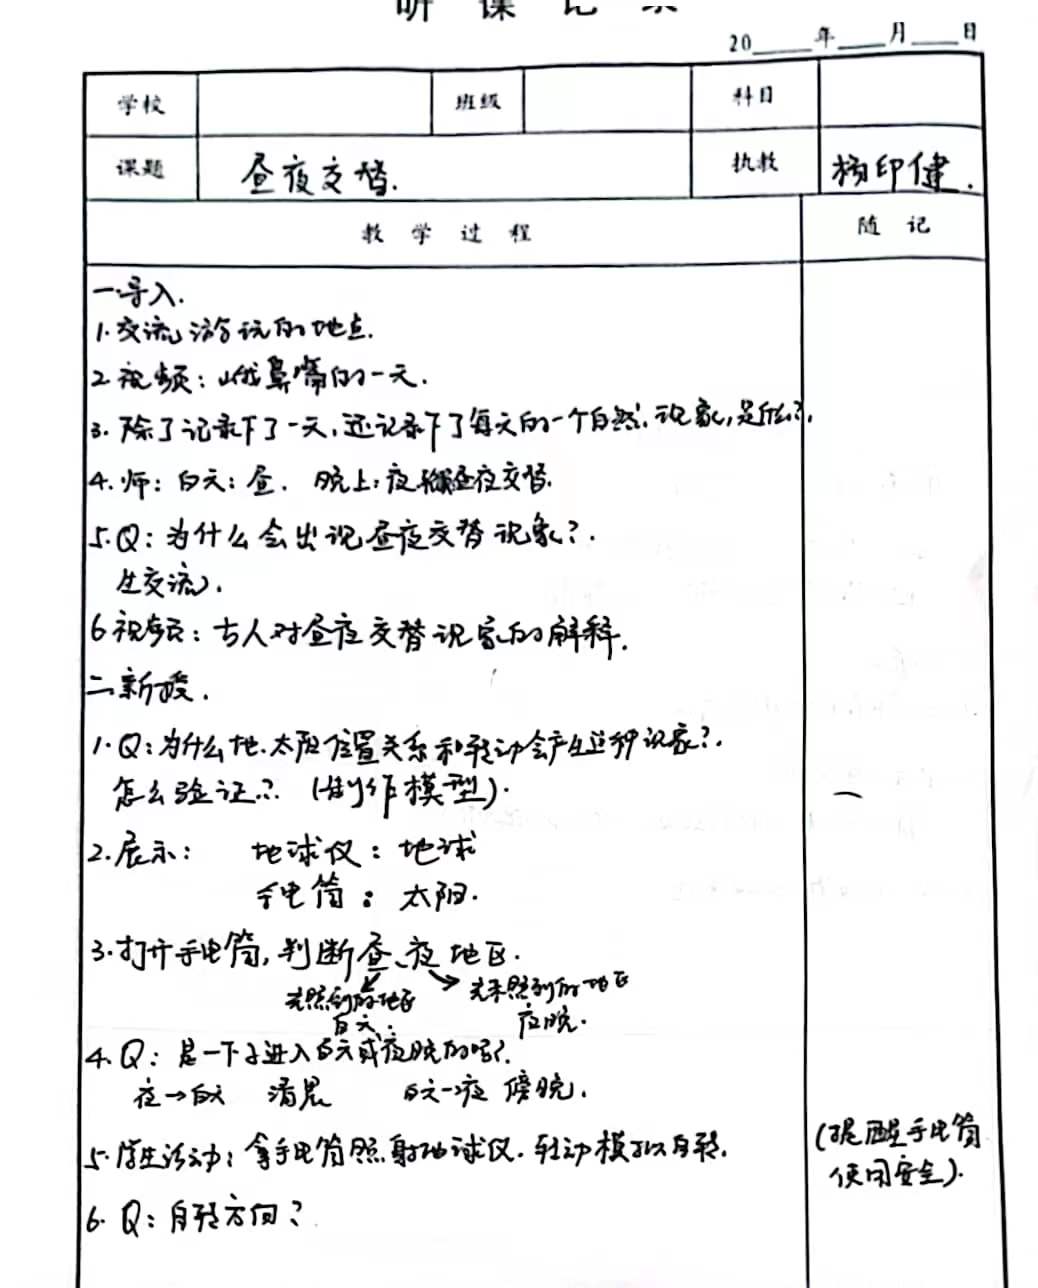 听课记录
20____年____月____日
学校 班级 科目
课题 昼夜交替. 执教 杨印健.
教学过程 随记
一.导入.
1.交流游玩的地点.
2.视频:峨鼻嘴的一天.
3.除了记录下了一天,还记录下了每天的一个自然现象,是什么?
4.师:白天:昼. 晚上:夜 昼夜交替.
5.Q:为什么会出现昼夜交替现象?.
生交流).
6.视频:古人对昼夜交替现象的解释.
二.新授.
1.Q:为什么地.太阳位置关系和转动会产生这种现象?.
怎么验证?(制作模型).
2.展示: 地球仪:地球
手电筒:太阳.
3.打开手电筒,判断昼、夜地区.
光照到的地区 光未照到的地区
白天. 夜晚.
4.Q:是一下子进入白天或夜晚的吗?.
夜→白天 清晨 白天→夜 傍晚.
5.学生活动:拿手电筒照射地球仪.转动模拟自转.
(提醒手电筒
使用安全).
6.Q:自转方向?